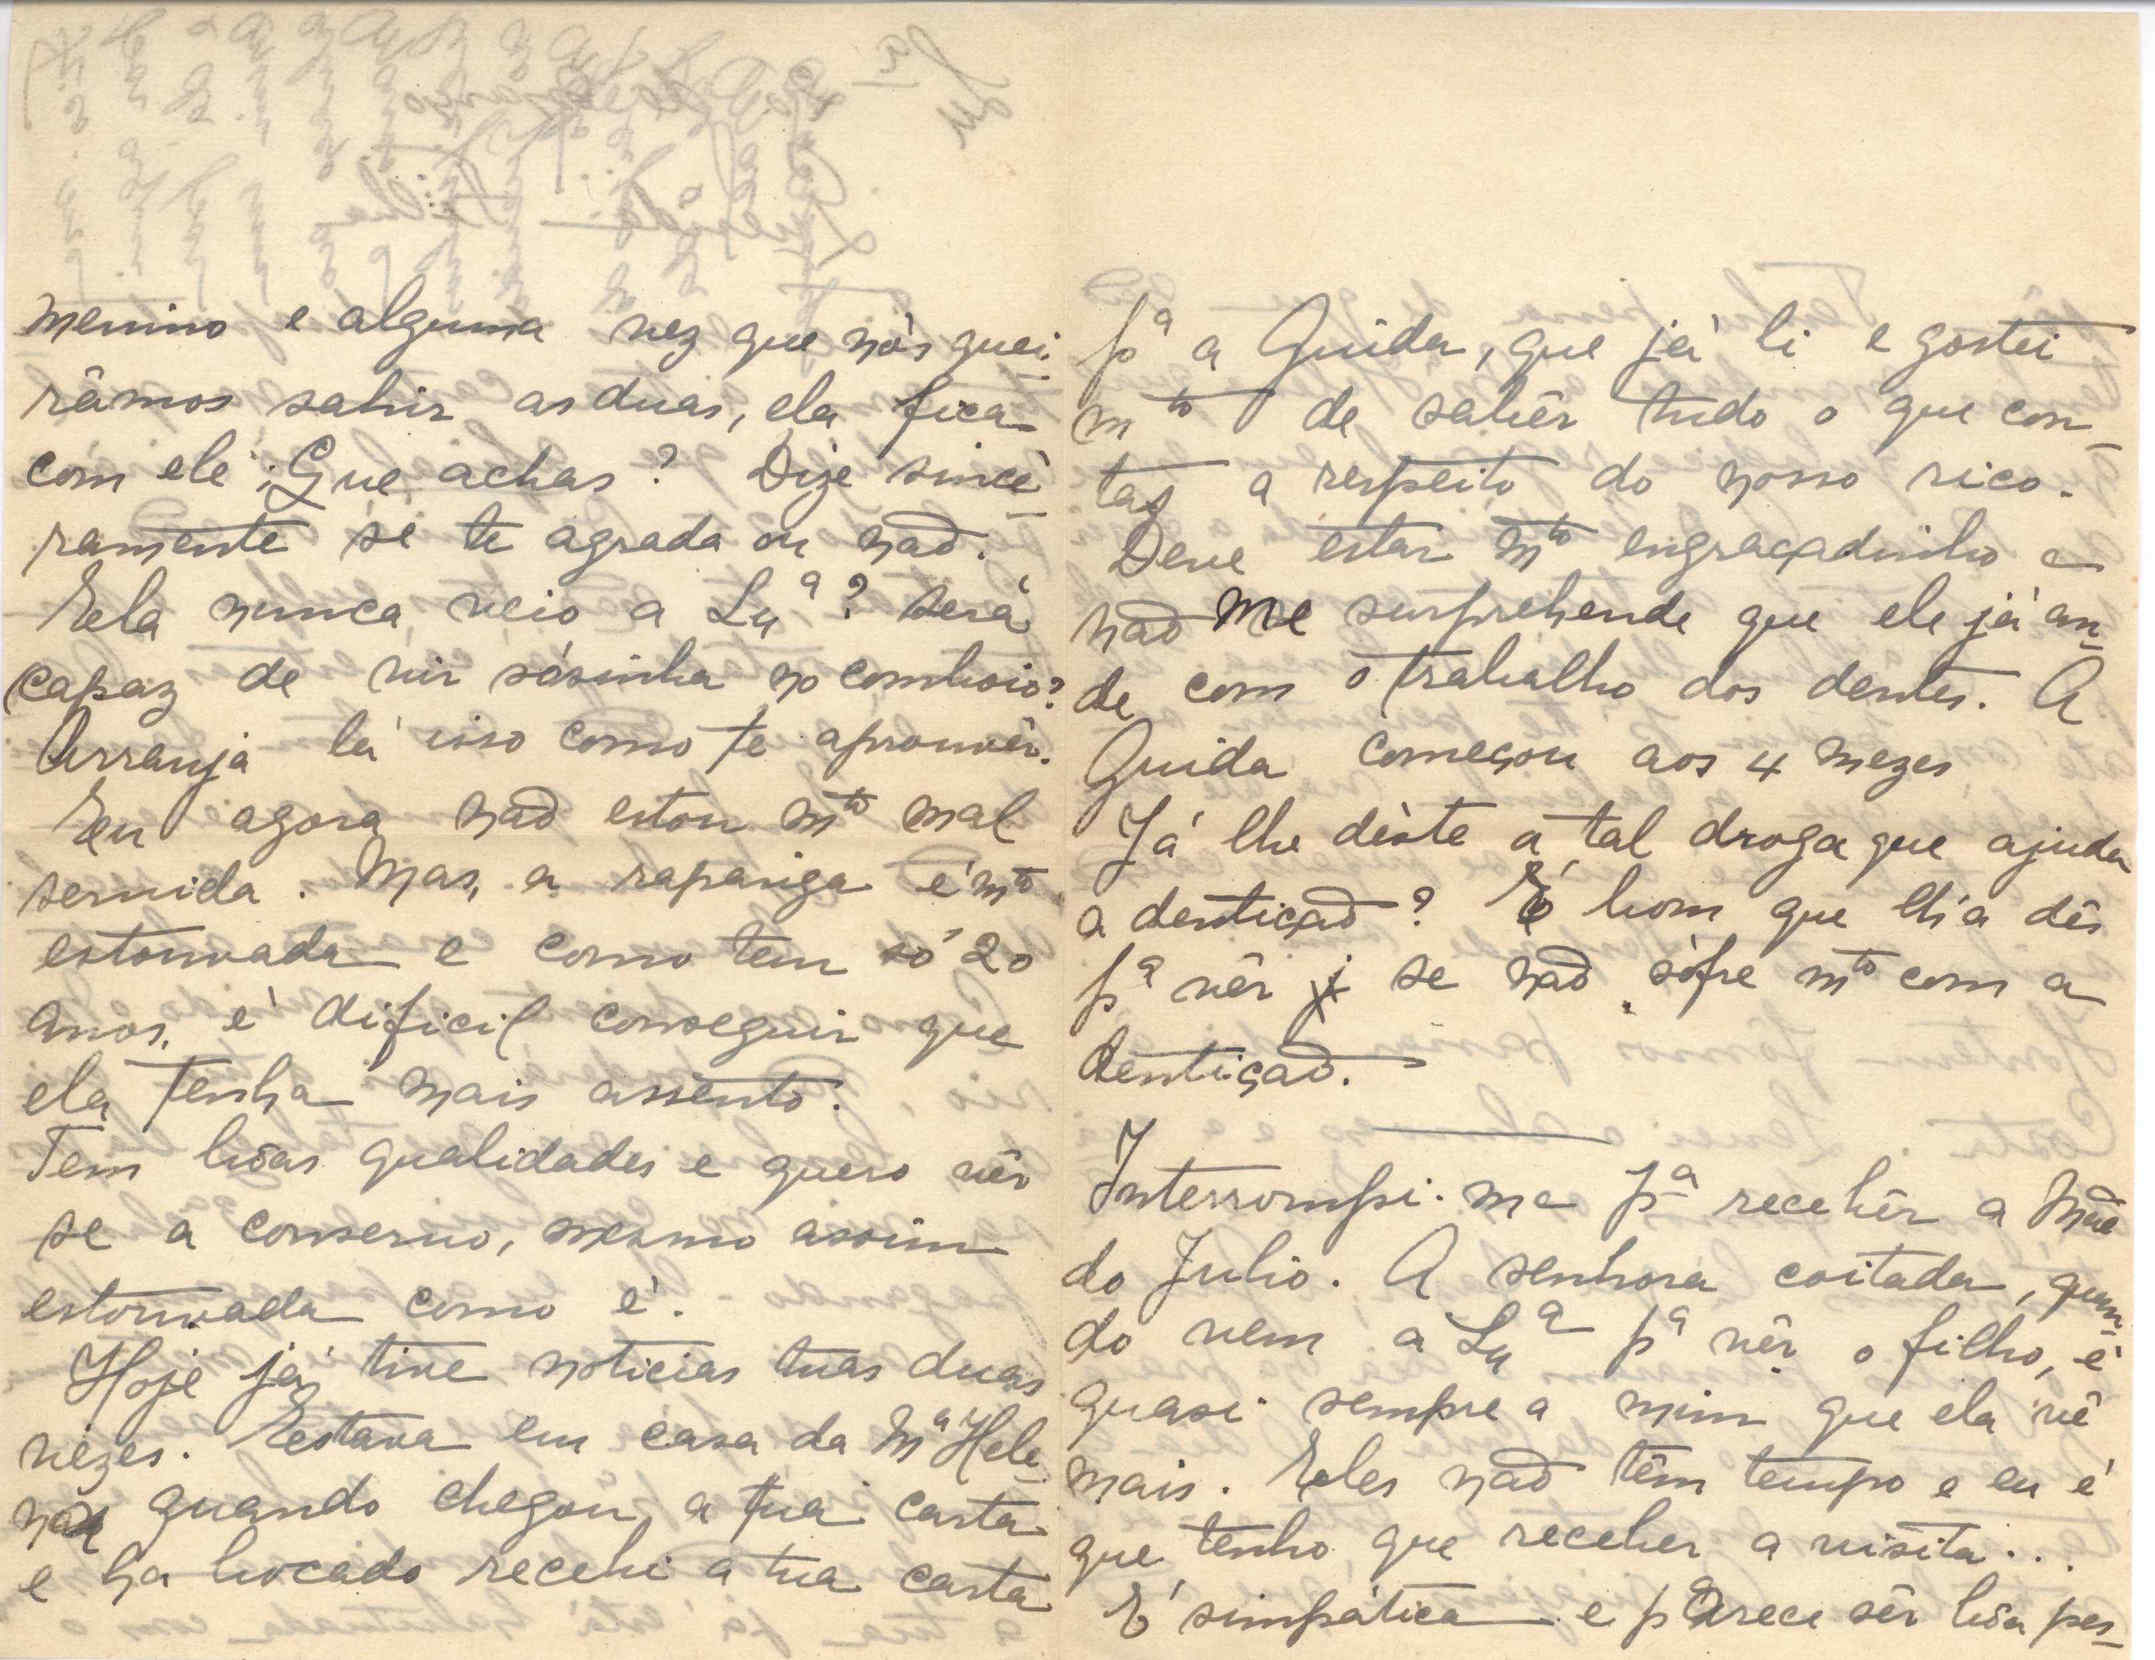 menino e alguma vez que nós quei-
râmos sahir as duas, ela fica
com ele. Que achas? Dize sincé-
ramente se te agrada ou não.
Ela nunca veio a Lxª? Será
capaz de vir sósinha no comboio?
Arranja lá isso como te aprouvér.
Eu agora não estou mto mal
servida. Mas, a rapariga é mto
estouvada e como tem só 20
anos, é dificil conseguir que
ela tenha mais assento.
Tem bôas qualidades e quero vêr
se a conservo, mesmo assim
estouvada como é.
Hoje já tive noticias tuas duas
vezes. Estava em casa da Mª Hele-
na quando chegou a tua carta
e ha bocado recebi a tua carta
pª a Guida, que já li e gostei
mto de sabêr tudo o que con-
tas a respeito do nosso rico.
Deve estar mto engraçadinho e
não me surprehende que ele já an-
de com o trabalho dos dentes. A
Guida começou aos 4 mezes
Já lhe déste a tal droga que ajuda
a dentição? É bom que lh'a dês
pª vêr se não sófre mto com a
dentição.
Interrompi-me pª recebêr a Mãe
do Julio. A senhora coitada, quan-
do vem a Lxª pª vêr o filho, é
quasi sempre a mim que ela vê
mais. Eles não têm tempo e eu é
que tenho que receber a visita...
É simpática e parece sêr bôa pes-